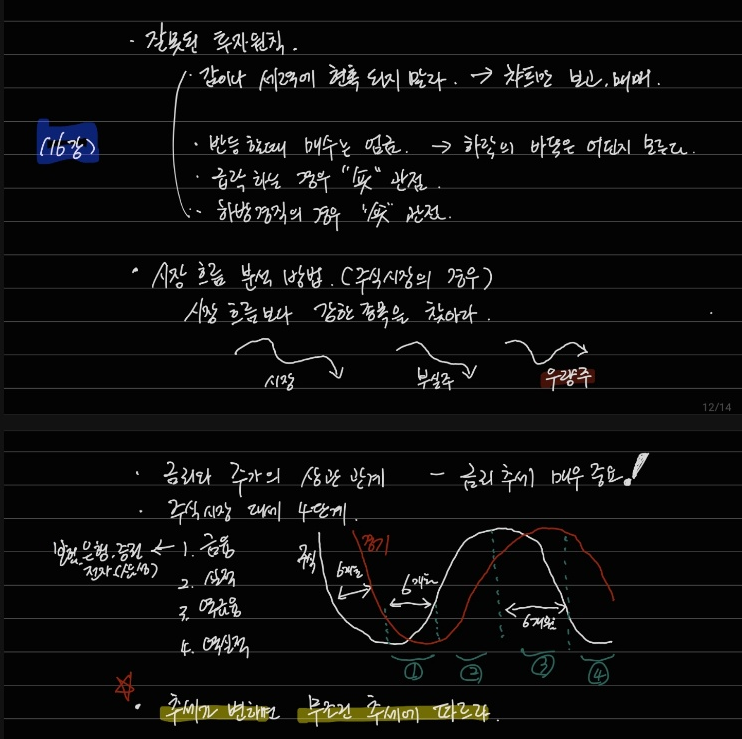 · 잘못된 투자원칙.
· 값이나 세력에 현혹 되지 말라. → 차트만 보고, 매매.
(16강)
· 반등 할때 매수는 엄금. → 하락의 바닥은 어딘지 모른다.
· 급락 하는 경우 "숏" 관점.
· 하방경직의 경우 "숏" 관점.
· 시장 흐름 분석 방법. (주식시장의 경우)
시장 흐름보다 강한 종목을 찾아라.
시장 부실주 우량주
12/14
· 금리와 주가의 상관 관계 - 금리 추세 매우 중요!
· 주식시장 대세 4단계.
은행, 증권 ← 1. 금융
전자
2. 실적
3. 역금융
4. 역실적
주식 경기
6개월 6개월 6개월
① ② ③ ④
☆
· 추세가 변하면 무조건 추세에 따르라.